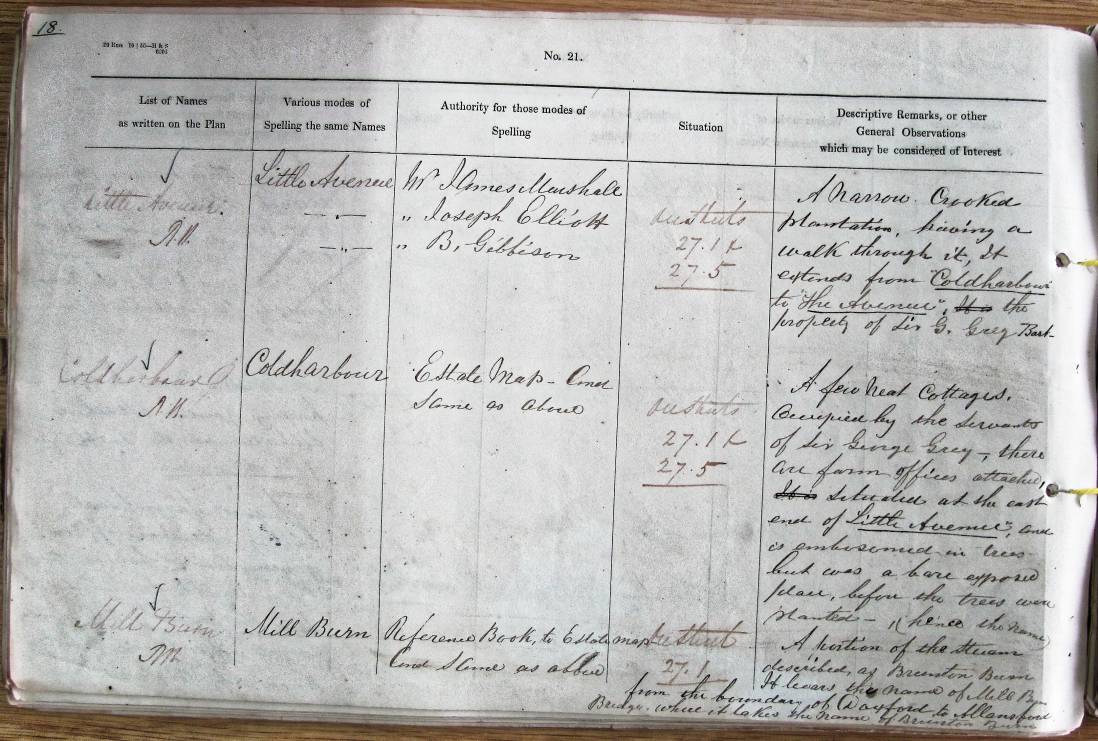 18.
No. 21.
List of Names
as written on the Plan
Various modes of
Spelling the same Names
Authority for those modes of
Spelling
Situation
Descriptive Remarks, or other
General Observations
which may be considered of Interest
Little Avenue.
Little Avenue
Mr. James Marshall
" Joseph Elliott
" B. Gibbison
27.1
27.5
A Narrow Crooked
plantation, having a
walk through it, It
extends from "Coldharbour"
to "The Avenue", It is the
property of Sir G. Grey Bart.
Coldharbour
Coldharbour
Estate Map - And
Same as above
27.1
27.5
A few Neat Cottages,
Occupied by the servants
of Sir George Grey, there
are farm offices attached,
It is situated at the east
end of "Little Avenue", and
is embosomed in trees
but was a bare exposed
place, before the trees were
planted - (hence the name)
Mill Burn
Mill Burn
Reference Book, to Estate map
And Same as above
27.1
A portion of the stream
described, as Brunton Burn
It bears the name of Mill Burn
from the boundary of Doxford to Allansford
Bridge, where it takes the name of Brunton Burn